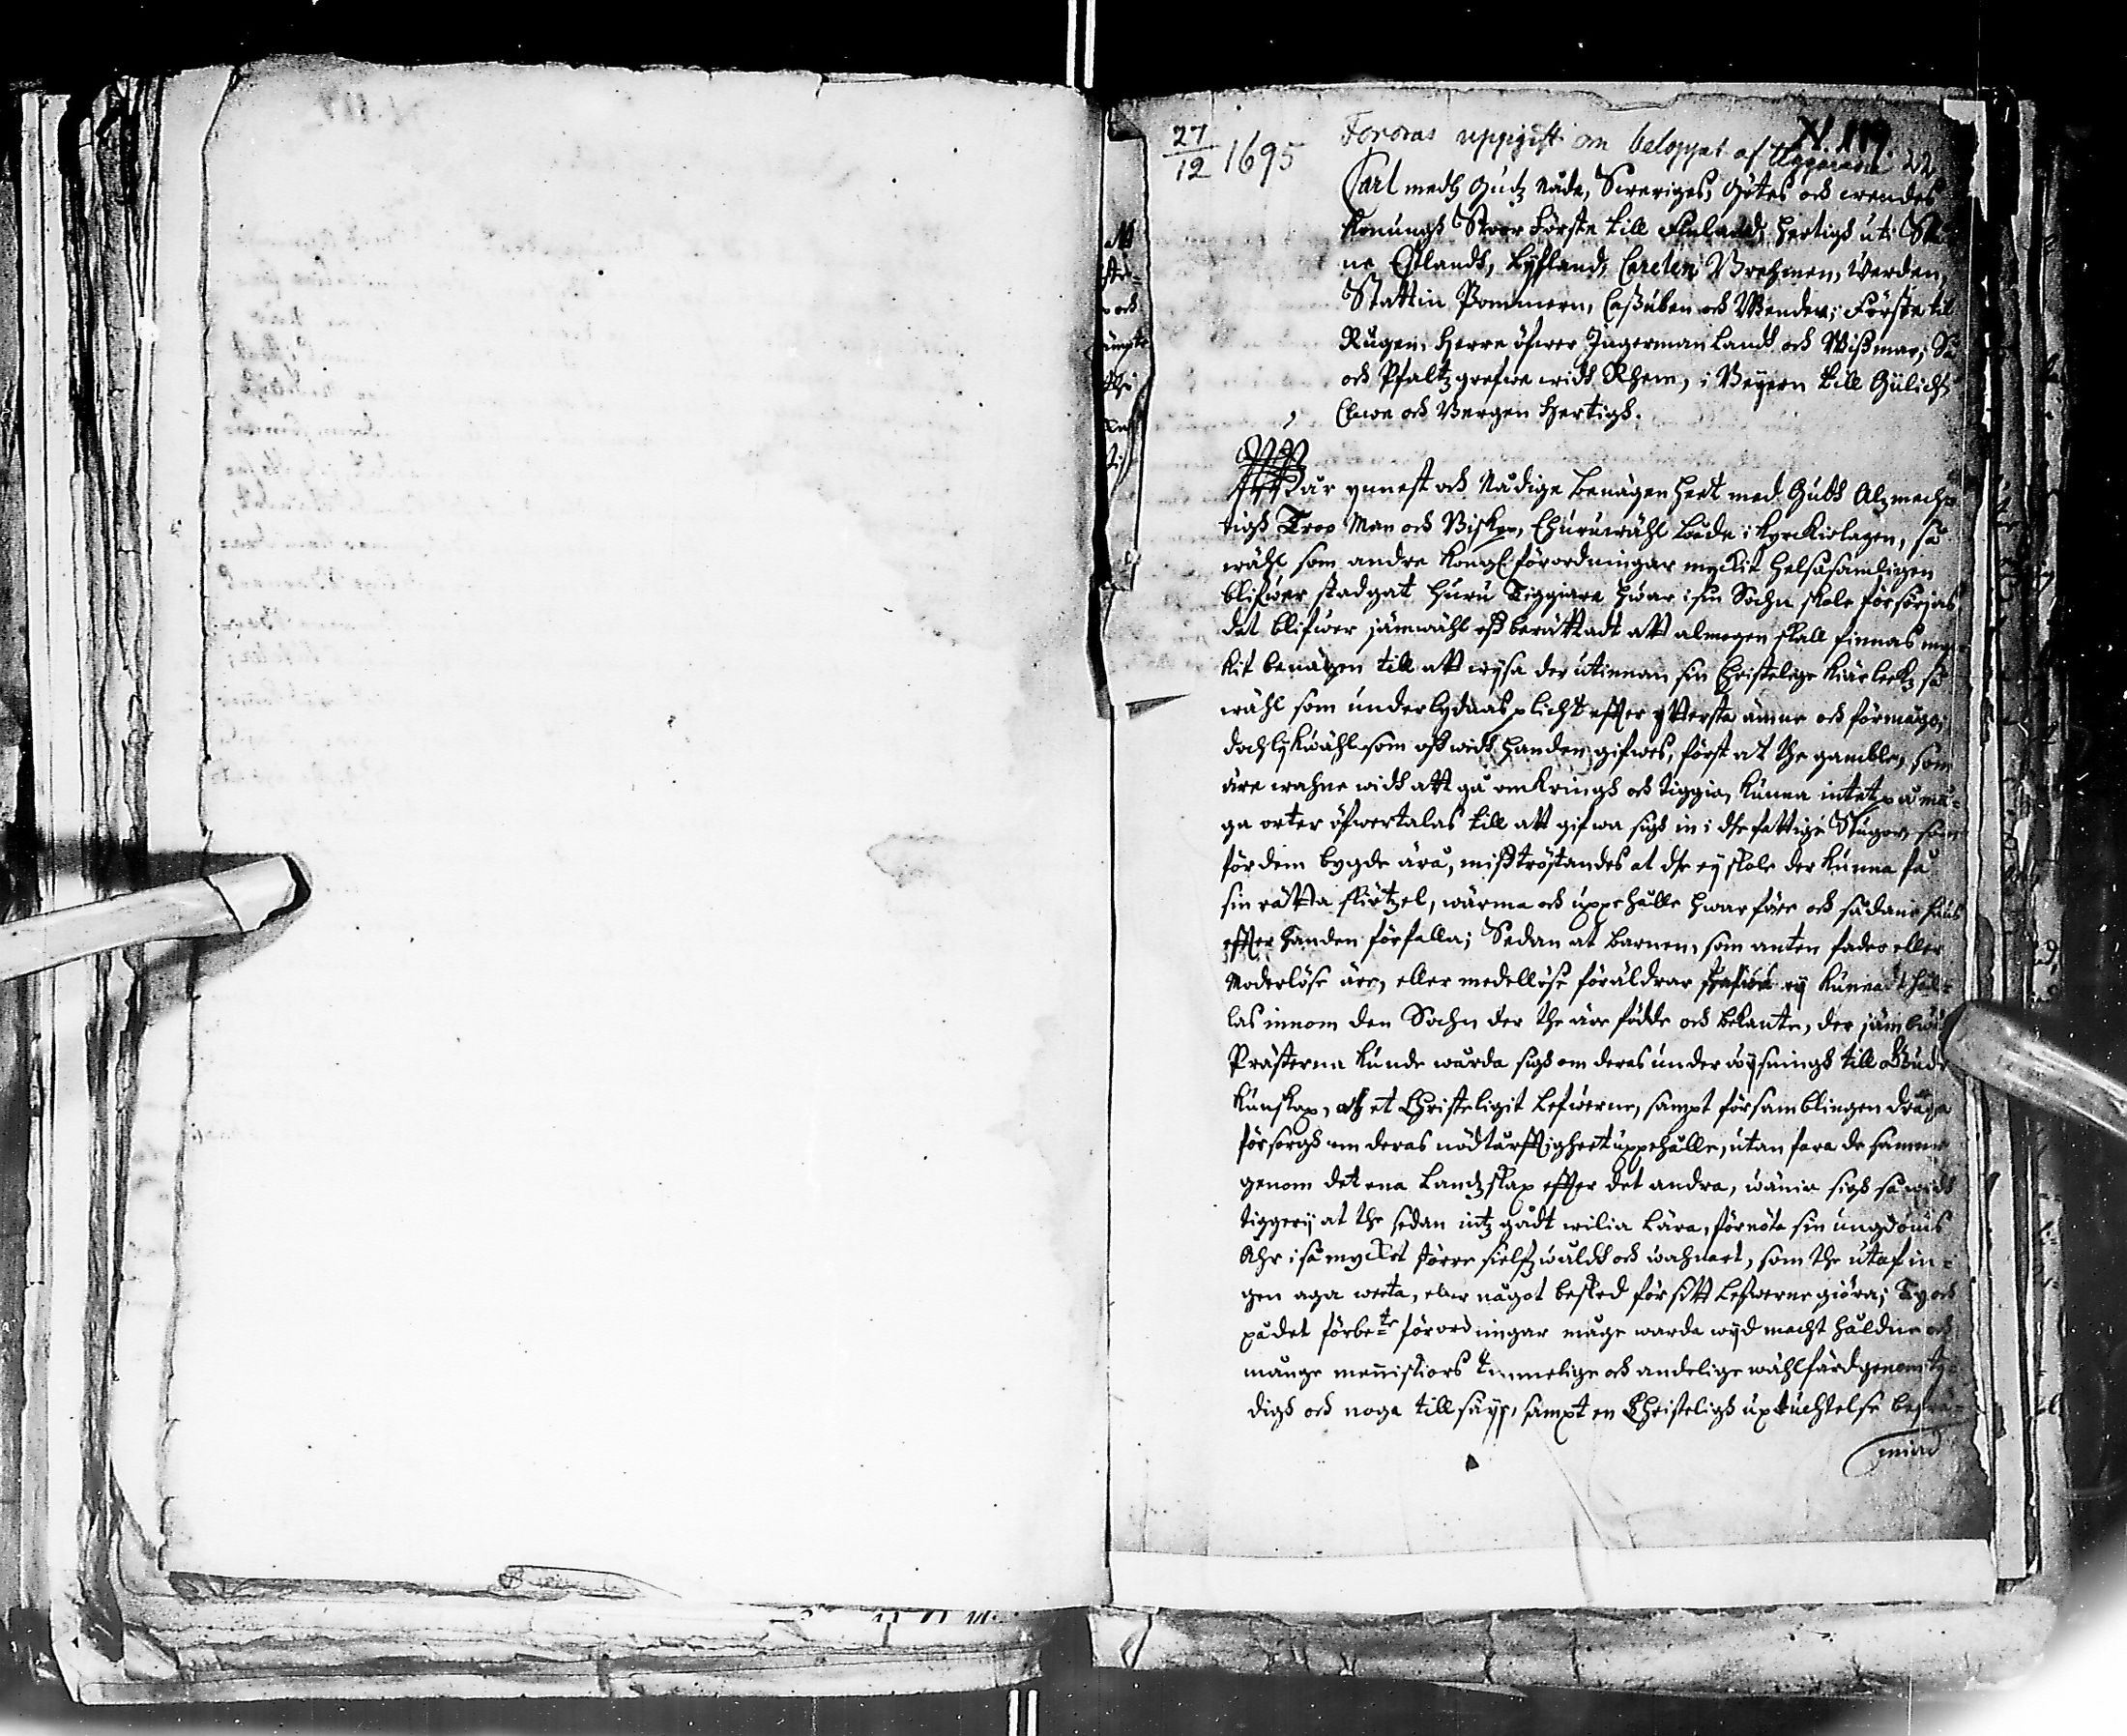 N. 119
27/12 1695 Fordras uppgift om beloppet af Tiggiarne
Carl medh Gudz Nåde, Sweriges, Götes och Wendes
Konungh Stoor Förste till Finland, Hertigh uti Skå
ne Estlandh, Lijfland, Carelen, Brehmen, Verden,
Stettin Pommern, Caßuben och Wenden; Förste til
Rugen, Herre öfwer Ingermanlandh och Wißmar; Så
och Pfaltzgrefwe widh Rhein, i Beyern till Gülich,
Clewe och Bergen Hertigh.
Wår ynnest och Nådige benägenheet med Gudh Alzmech-
tigh Troo Man och Biskop, Ehuruwähl både i Kyrckiolagen, så
wähl som andre Kongl. förordningar myckit helsosamligen
blifwer stadgat huru Tiggiare hwar i sin Sochn skole försörjas
det blifwer jämwähl oß berättadt att almogen skall finnas myc-
kit benägen till att wijsa der utinnan sin Christelige Kiärleek, så
wähl som underlydnas plicht effter ytterste ämne och förmågo;
doch lijkwähl som oß widh handen gifwes, först at the gamble, som
äre wahne widh att gå omkringh och tiggia, kunna intet på må-
ga orter öfwertalas till att gifwa sigh in i dhe fattige Stugor, som
för dem bygde äro, mißtröstandes at dhe ey skole der kunna få
sin rätta skötzel, wärme och uppehälle hwarföre och sådane huus
effter handen förfalla; Sedan at barnen, som anten fader eller
Moderlöse äre, eller medellöse föräldrar hafwa ey kunna hål-
las innom den Sochn der the äre födde och bekante, der jämbwäl
Prästerna kunde wårda sigh om deras underwijsningh till Gudz
kunskap, och et Christeligit Lefwerne, sampt församblingen draga
försorgh om deras nödturfftigheet uppehälle, utan fara de samme
genom det ena Landzskap effter det andra, wänie sigh så widh
tiggerij at the sedan intz gådt wilia lära, förnöte sin ungdoms
Åhr i så mycket större sielfzwåldh och wahnart, som the utaf in-
gen aga weeta, eller något beskied för sitt Lefwerne giöra; Ty och
på det förbe:te förordningar måge warda wijd macht håldne och
månge menniskiors timmelige och andelige wählfärd genom ty-
digh och noga tillsijn, sampt en Christeligh uptuchtelse befrä-
miad